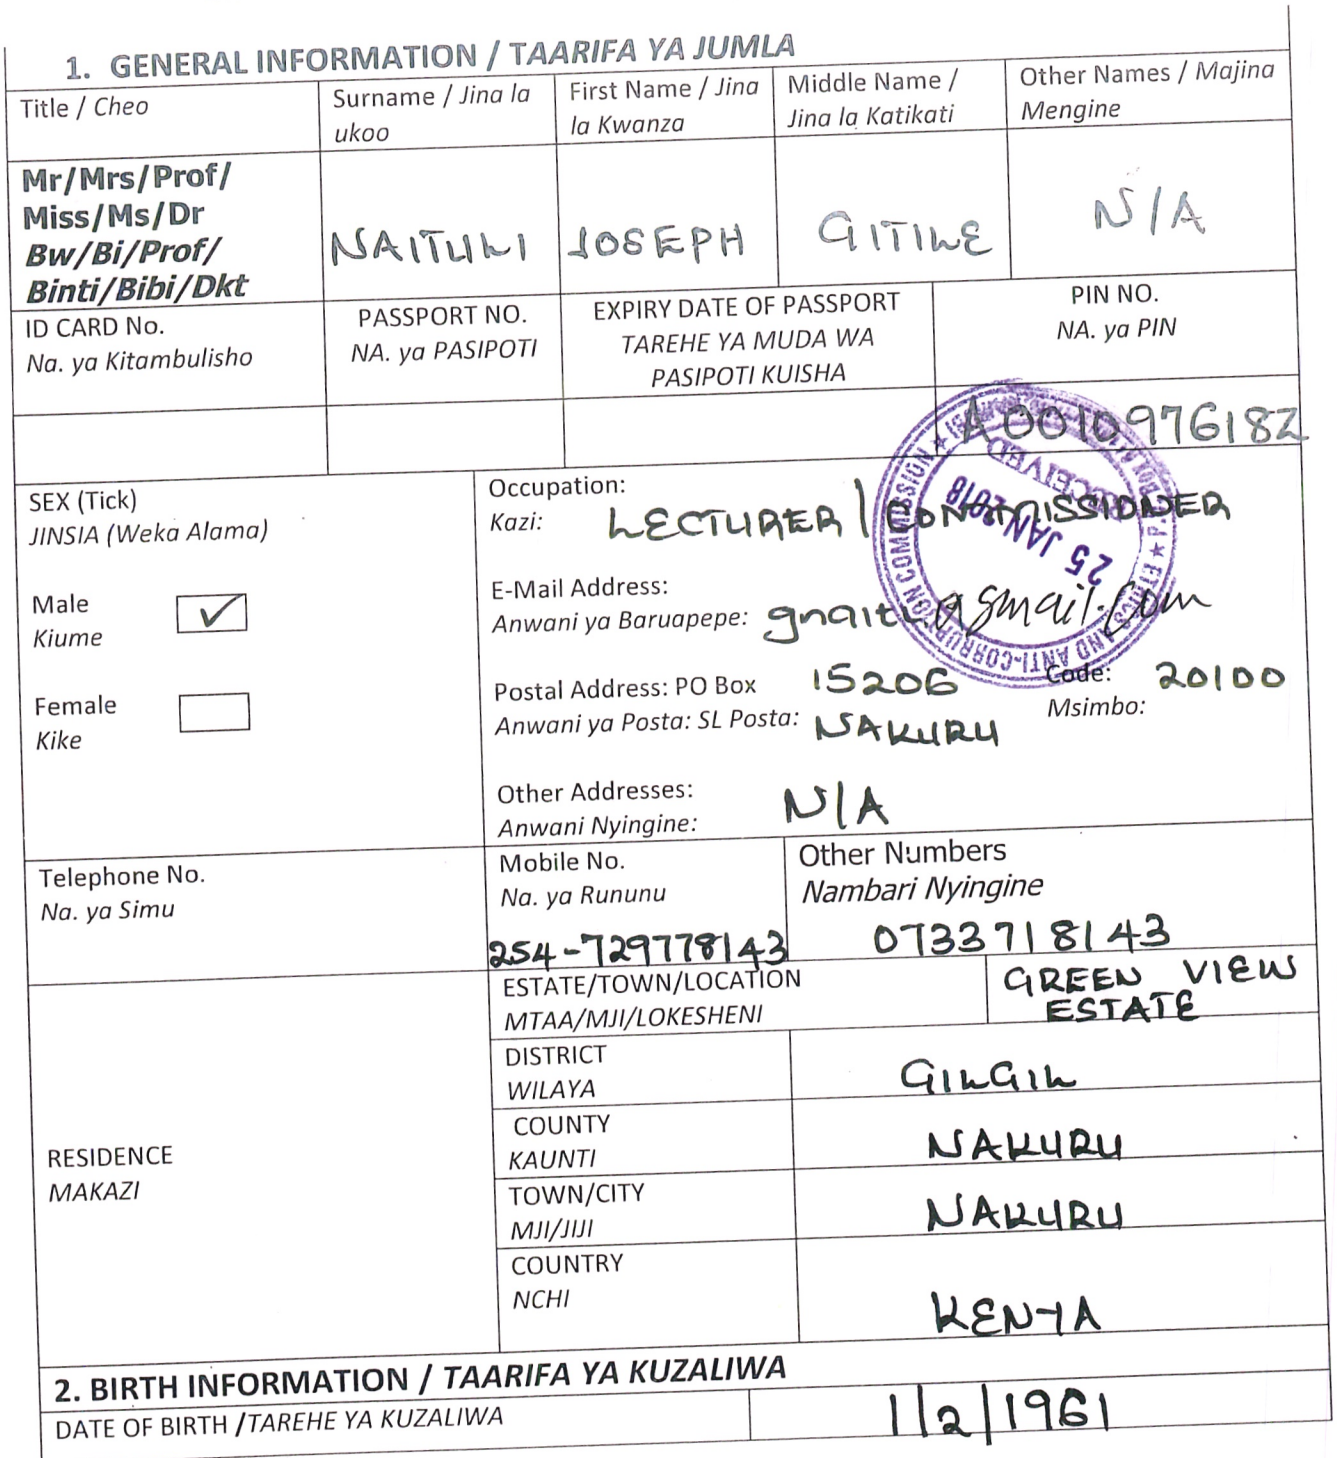 1. GENERAL INFORMATION / TAARIFA YA JUMLA
Title / Cheo
Surname / Jina la
ukoo
First Name / Jina
la Kwanza
Middle Name /
Jina la Katikati
Other Names / Majina
Mengine
Mr/Mrs/Prof/
Miss/Ms/Dr
Bw/Bi/Prof/
Binti/Bibi/Dkt
NAITULI
JOSEPH
GITILE
N/A
ID CARD No.
Na. ya Kitambulisho
PASSPORT NO.
NA. ya PASIPOTI
EXPIRY DATE OF PASSPORT
TAREHE YA MUDA WA
PASIPOTI KUISHA
PIN NO.
NA. ya PIN
A001097618Z
SEX (Tick)
JINSIA (Weka Alama)
Male
Kiume
Female
Kike
Occupation:
Kazi:
LECTURER / COMMISSIONER
E-Mail Address:
Anwani ya Baruapepe:
gmail.com
Postal Address: PO Box 15206 Code: 20100
Anwani ya Posta: SL Posta: NAKURU Msimbo:
Other Addresses:
Anwani Nyingine:
N/A
RECEIVED
25 JAN 2018
ETHICS AND ANTI-CORRUPTION COMMISSION
Telephone No.
Na. ya Simu
Mobile No.
Na. ya Rununu
254-729778143
Other Numbers
Nambari Nyingine
0733718143
RESIDENCE
MAKAZI
ESTATE/TOWN/LOCATION
MTAA/MJI/LOKESHENI
GREEN VIEW
ESTATE
DISTRICT
WILAYA
GILGIL
COUNTY
KAUNTI
NAKURU
TOWN/CITY
MJI/JIJI
NAKURU
COUNTRY
NCHI
KENYA
2. BIRTH INFORMATION / TAARIFA YA KUZALIWA
DATE OF BIRTH /TAREHE YA KUZALIWA
1/2/1961